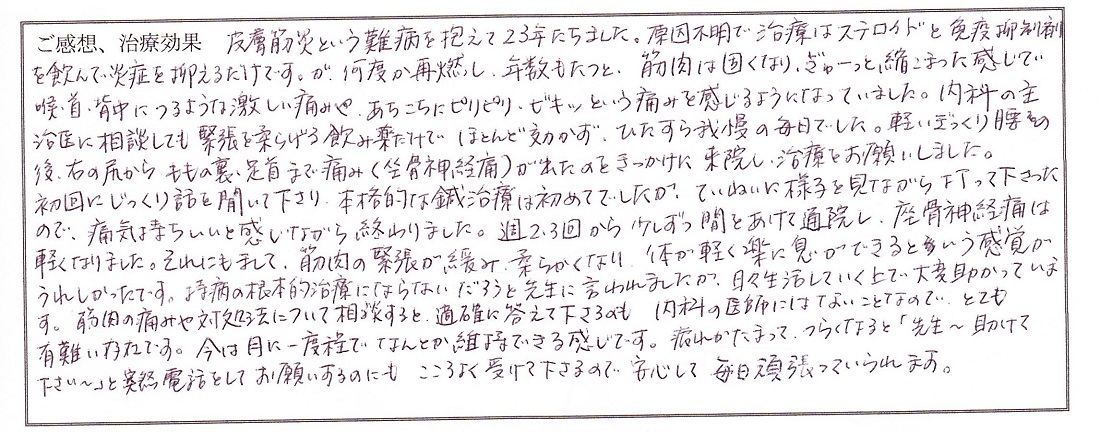 ご感想、治療効果 皮膚筋炎という難病を抱えて23年たちました。原因不明で治療はステロイドと免疫抑制剤
を飲んで炎症を抑えるだけです。が、何度か再燃し、年数もたつと、筋肉は固くなり、ぎゅーっと縮こまった感じで
喉・首・背中につるような激しい痛みや、あちこちにピリピリ・ビキッという痛みを感じるようになっていました。内科の主
治医に相談しても緊張を柔らげる飲み薬だけで ほとんど効かず、ひたすら我慢の毎日でした。軽いぎっくり腰その
後、右の尻から ももの裏、足首まで痛み(坐骨神経痛)が出たのをきっかけに来院し、治療をお願いしました。
初回にじっくり話を聞いて下さり、本格的な鍼治療は初めてでしたが、ていねいに様子を見ながら打って下さった
ので、痛気持ちいいと感じながら終わりました。週2.3回から少しずつ間をあけて通院し、座骨神経痛は
軽くなりました。それにもまして、筋肉の緊張が緩み、柔らかくなり、体が軽く楽に息ができるという感覚が
うれしかったです。持病の根本的治療にならないだろうと先生に言われましたが、日々生活していく上で大変助かっていま
す。筋肉の痛みや対処法について相談すると、適確に答えて下さるのも 内科の医師にはないことなので、とても
有難い存在です。今は月に一度程でなんとか維持できる感じです。疲れがたまって、つらくなると「先生~助けて
下さい~」と突然電話をしてお願いするのにも こころよく受けて下さるので 安心して 毎日頑張っていられます。